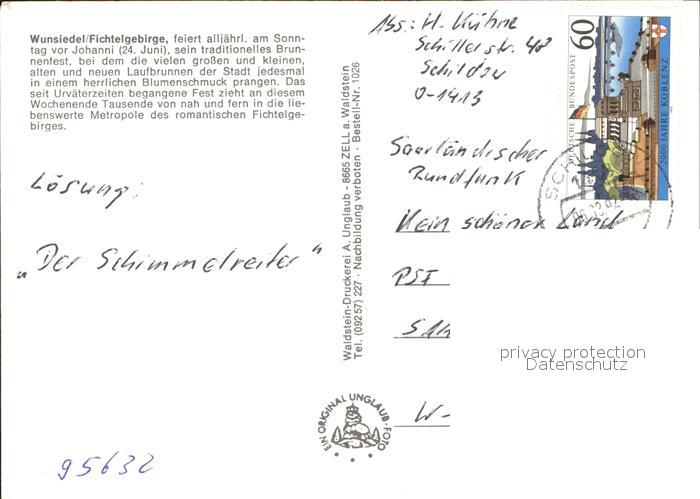 Wunsiedel/Fichtelgebirge, feiert alljährl. am Sonn-
tag vor Johanni (24. Juni), sein traditionelles Brun-
nenfest, bei dem die vielen großen und kleinen,
alten und neuen Laufbrunnen der Stadt jedesmal
in einem herrlichen Blumenschmuck prangen. Das
seit Urväterzeiten begangene Fest zieht an diesem
Wochenende Tausende von nah und fern in die lie-
benswerte Metropole des romantischen Fichtelge-
birges.
Lösung:
„Der Schimmelreiter"
95632
Waldstein-Druckerei A. Unglaub · 8665 ZELL a. Waldstein
Tel. (09257) 227 · Nachbildung verboten · Bestell-Nr. 1026
EIN ORIGINAL UNGLAUB-FOTO
Abs.: H. Kühne
Schillerstr. 48
Schildau
O-7293
Saarländischer
Rundfunk
Kein schöner Land
PSF
SAA
W-
60
DEUTSCHE BUNDESPOST
2000 JAHRE KOBLENZ
SCHIL
privacy protection
Datenschutz